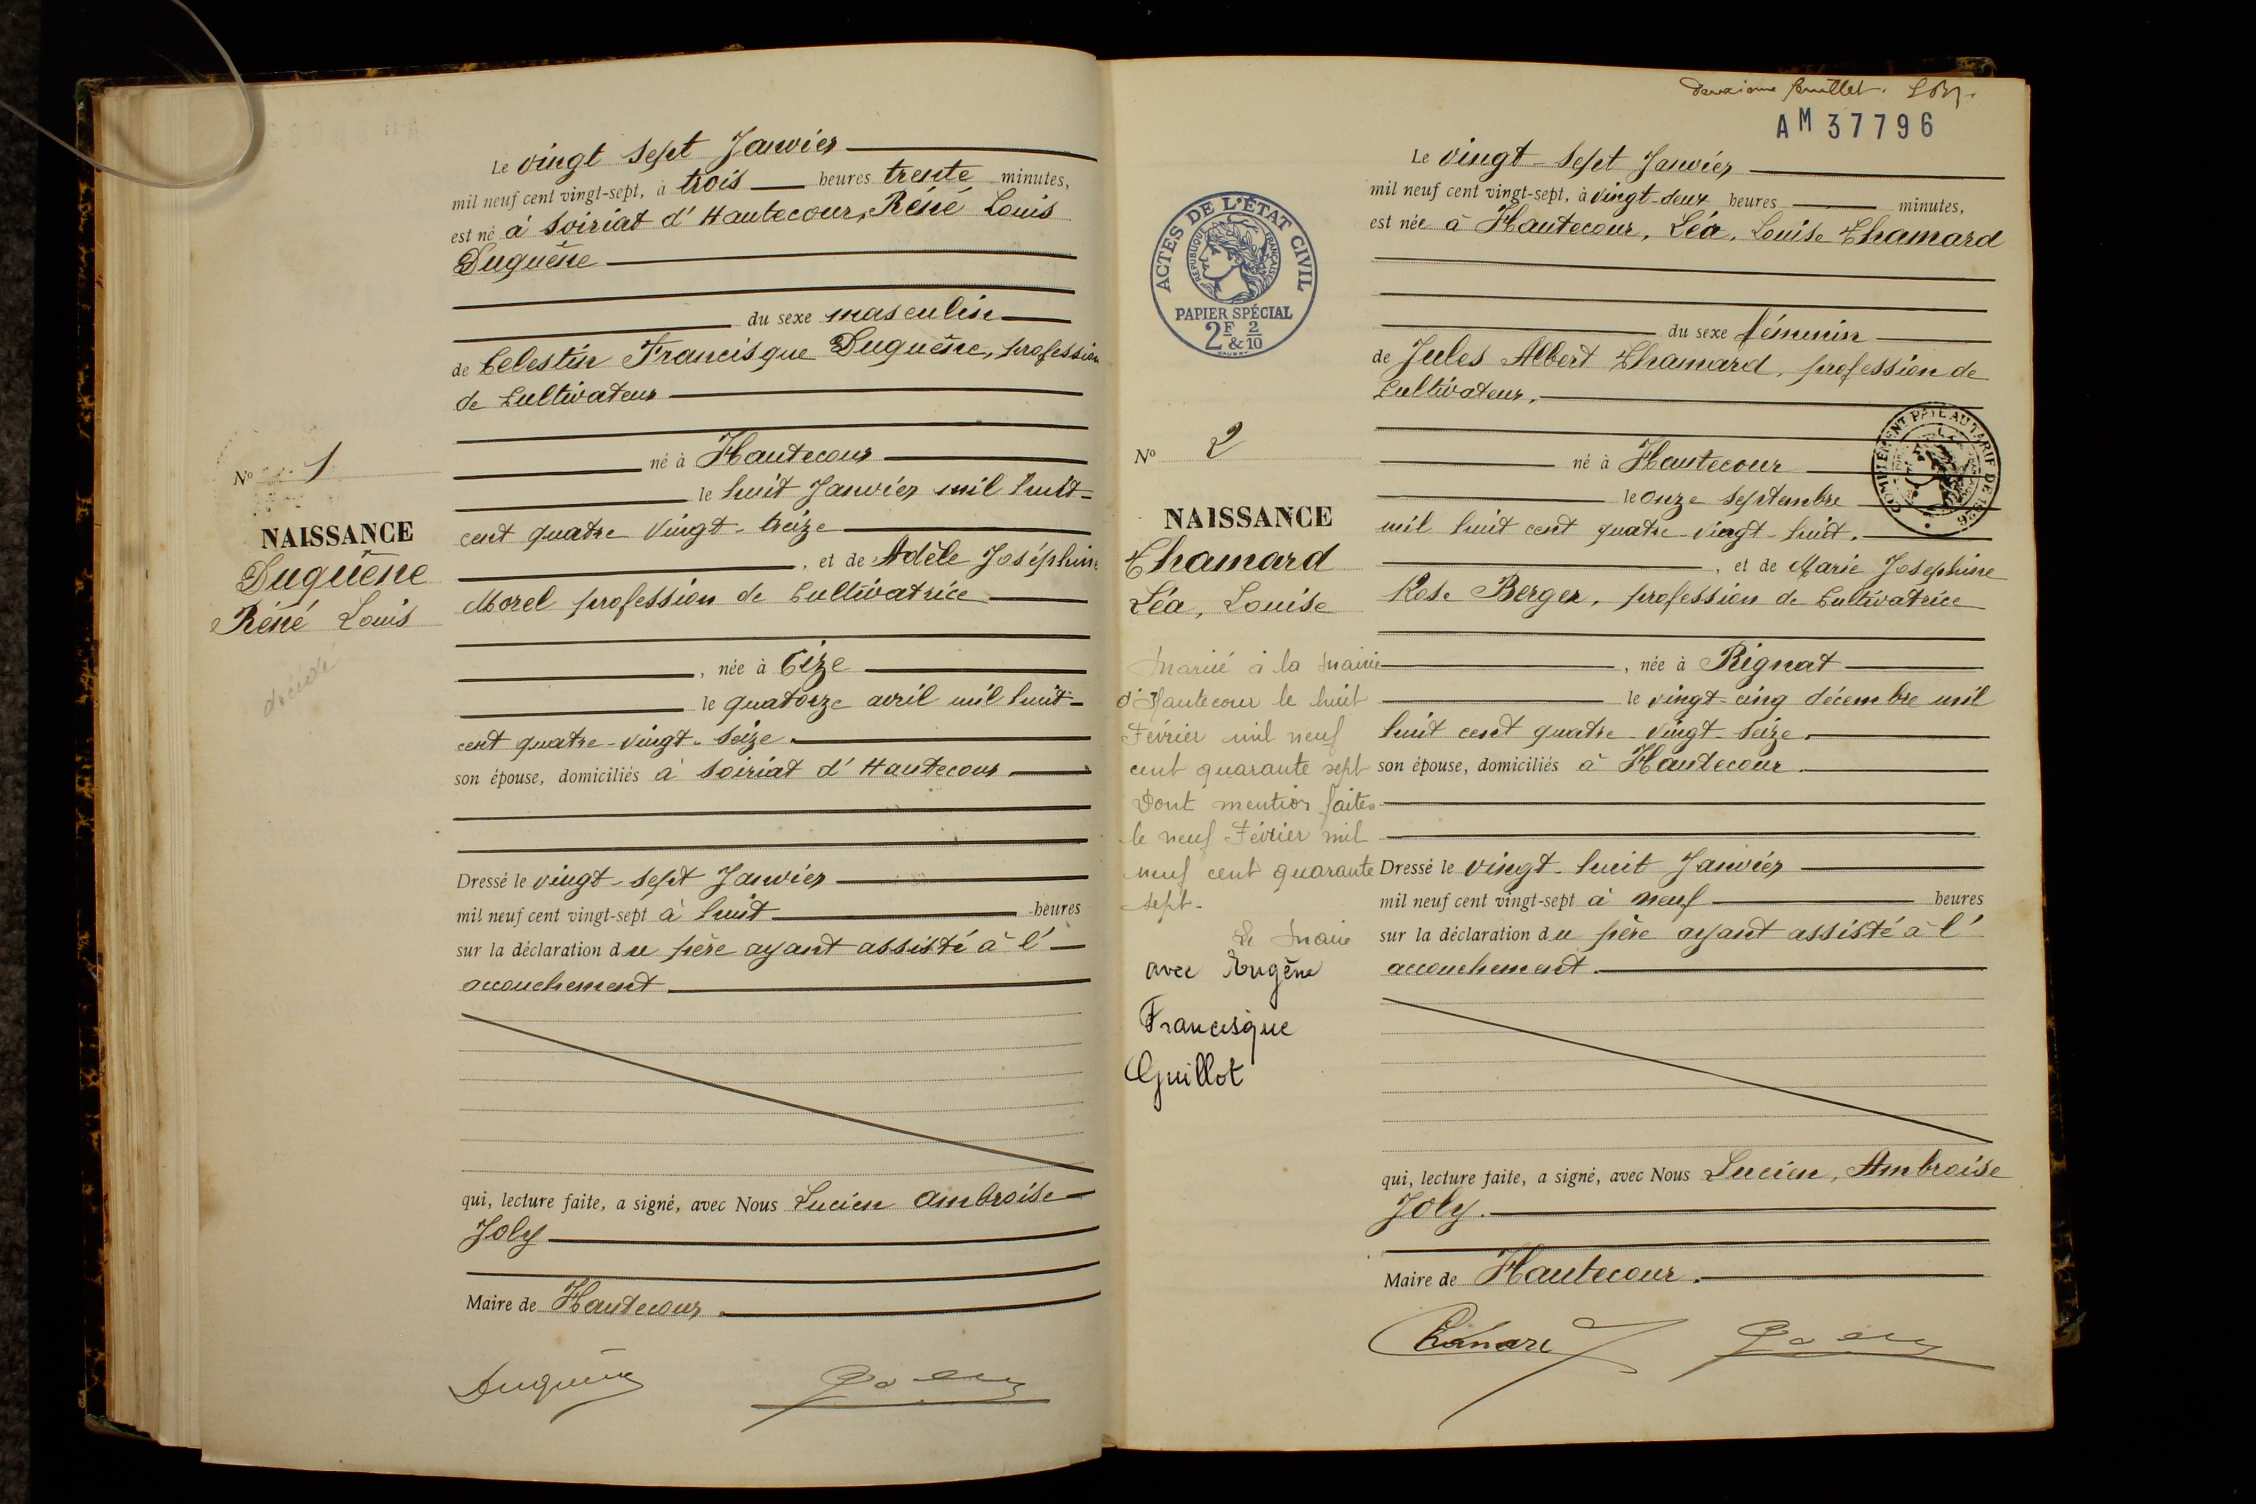 Le vingt sept Janvier
mil neuf cent vingt-sept, à trois heures trente minutes,
est né à Soiriat d'Hautecour, Réné Louis
Duguêne
du sexe masculin
de Celestin Francisque Duguêne, profession
de Cultivateur
né à Hautecour
le huit Janvier mil huit-
cent quatre Vingt-treize
, et de Adèle Joséphine
Morel profession de Cultivatrice
, née à Cize
le quatorze avril mil huit-
cent quatre-vingt-seize
son épouse, domiciliés à Soiriat d'Hautecour
Dressé le vingt-sept Janvier
mil neuf cent vingt-sept à huit heures
sur la déclaration du père ayant assisté à l'
accouchement
qui, lecture faite, a signé, avec Nous Lucien Ambroise
Joly
Maire de Hautecour.
Duguêne
Joly
No 1
NAISSANCE
Duguêne
Réné Louis
décédé
deuxième feuillet.
AM 37796
ACTES DE L'ÉTAT CIVIL
RÉPUBLIQUE FRANÇAISE
PAPIER SPÉCIAL
2F & 2/10
Le vingt-sept Janvier
mil neuf cent vingt-sept, à vingt-deux heures minutes,
est née à Hautecour, Léa, Louise Chamard
du sexe féminin
de Jules Albert Chamard, profession de
Cultivateur,
né à Hautecour
le onze septembre
mil huit cent quatre-vingt-huit.
, et de Marie Josephine
Rose Berger, profession de Cultivatrice
, née à Rignat
le vingt-cinq décembre mil
huit cent quatre-vingt-seize.
son épouse, domiciliés à Hautecour.
Dressé le vingt-huit Janvier
mil neuf cent vingt-sept à neuf heures
sur la déclaration du père ayant assisté à l'
accouchement.
qui, lecture faite, a signé, avec Nous Lucien, Ambroise
Joly.
Maire de Hautecour.
Chamard
Joly
COMPLÉMENT PAYÉ AU TARIF DE 1926
No 2
NAISSANCE
Chamard
Léa, Louise
Marié à la Mairie
d'Hautecour le huit
Février mil neuf
cent quarante sept
Dont mention faites
le neuf Février mil
neuf cent quarante
sept-
Le Maire
avec Eugène
Francisque
Guillot